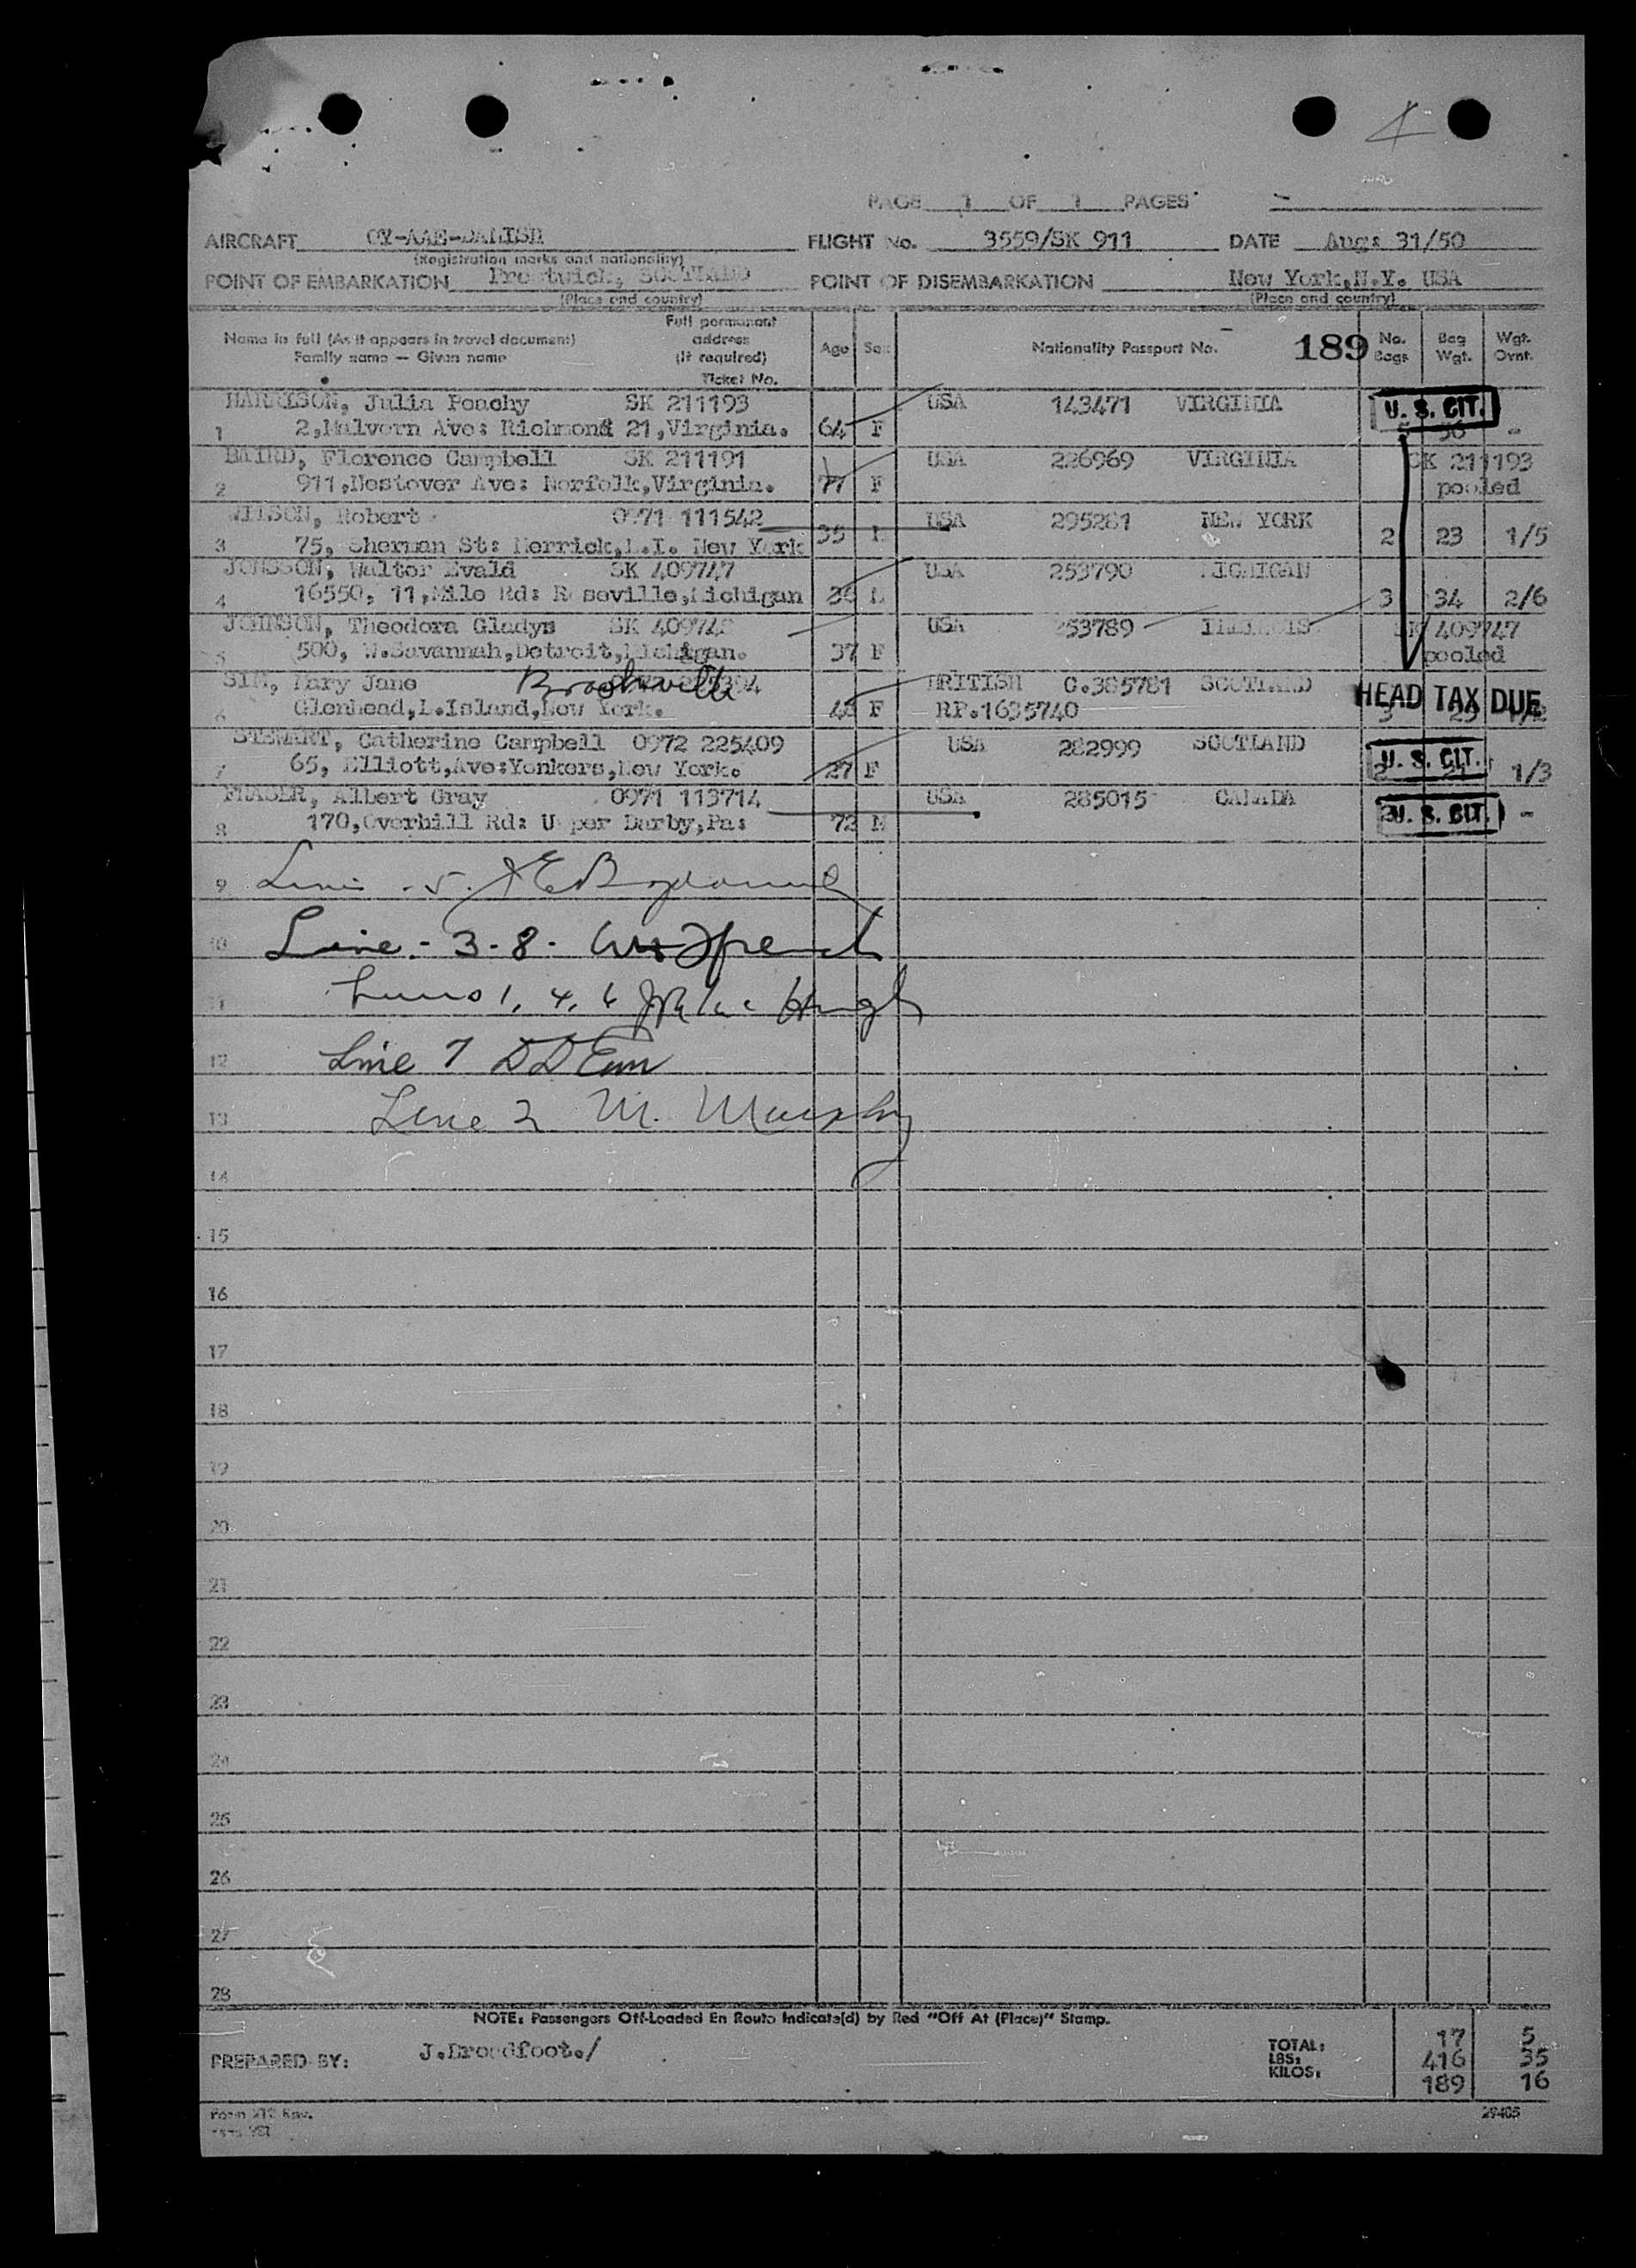 PAGE 1 OF 1 PAGES
AIRCRAFT OY-AAE-DANISH FLIGHT No. 3559/SK 911 DATE Aug: 31/50
(Registration marks and nationality)
POINT OF EMBARKATION Prestwick, SCOTLAND POINT OF DISEMBARKATION New York,N.Y. USA
(Place and country) (Place and country)
Name in full (As it appears in travel document)
Family name — Given name
Full permanent
address
(If required)
Ticket No.
Age Sex Nationality Passport No. 189 No. Bags Bag Wgt. Wgt. Ovnt.
HARRISON, Julia Peachy SK 211193 USA 143471 VIRGINIA U. S. CIT.
1 2,Malvern Ave: Richmond 21,Virginia. 64 F 5 56 -
BAIRD, Florence Campbell SK 211191 USA 226969 VIRGINIA SK 211193
2 911,Westover Ave: Norfolk,Virginia. 77 F pooled
WILSON, Robert 0971 111542 USA 295281 NEW YORK
3 75, Sherman St: Merrick,L.I. New York 35 M 2 23 1/5
JONSSON, Walter Evald SK 409747 USA 253790 MICHIGAN
4 16550, 11,Mile Rd: Roseville,Michigan 36 M 3 34 2/6
JOHNSON, Theodora Gladys SK 409748 USA 253789 ILLINOIS SK 409747
5 500, W.Savannah,Detroit,Michigan. 37 F pooled
SIM, Mary Jane Brookville BRITISH C.385781 SCOTLAND HEAD TAX DUE
6 Glenhead,L.Island,New York. 48 F RP.1635740 3 29
STEWART, Catherine Campbell 0972 225409 USA 282999 SCOTLAND U. S. CIT.
7 65, Elliott,Ave:Yonkers,New York. 27 F 2 21 1/3
FRASER, Albert Gray 0971 113714 USA 285015 CANADA U. S. CIT.
8 170,Overhill Rd: Upper Darby,Pa: 72 M -
9 Line - 5.
10 Line - 3 - 8 -
11 Lines 1, 4, 6
12 Line 7
13 Line 2 M. Murphy
14
15
16
17
18
19
20
21
22
23
24
25
26
27
28
NOTE: Passengers Off-Loaded En Route Indicate(d) by Red "Off At (Place)" Stamp.
PREPARED BY: J.Broadfoot./
TOTAL: 17 5
LBS: 416 35
KILOS: 189 16
29405